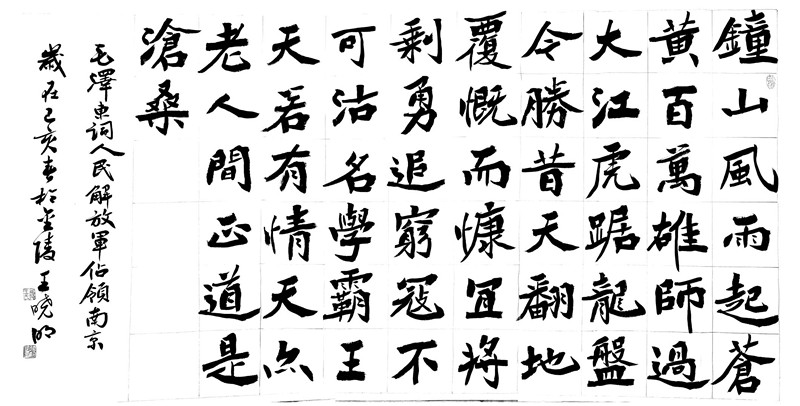 鐘山風雨起蒼
黄百萬雄師過
大江虎踞龍盤
今勝昔天翻地
覆慨而慷宜將
剩勇追窮寇不
可沽名學霸王
天若有情天亦
老人間正道是
滄桑
毛澤東詞人民解放軍佔領南京
歲在己亥春於金陵王晓明